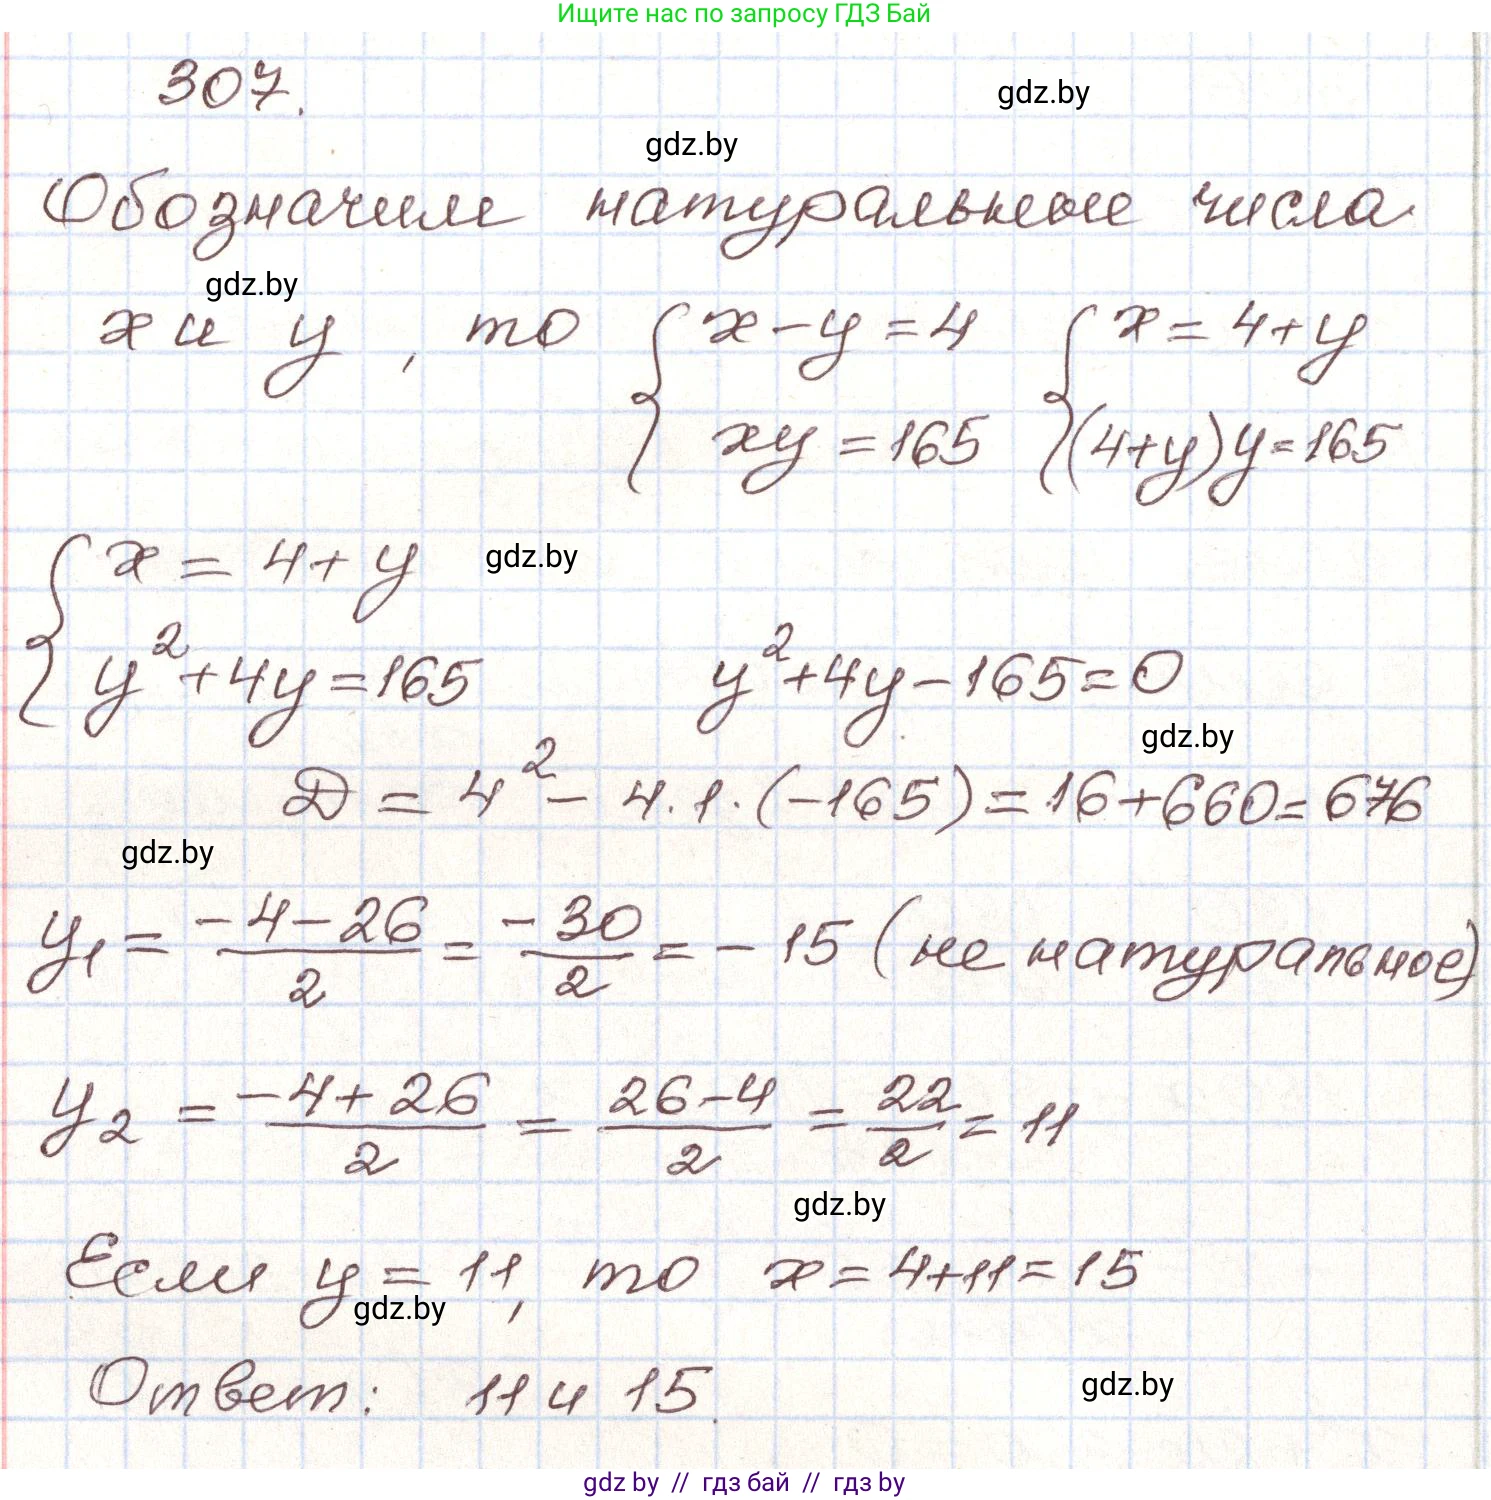 Ищите нас по запросу ГДЗ Бай
307.
gdz.by
gdz.by
Обозначим натуральные числа
gdz.by
x и y, то { x-y=4 { x=4+y
xy=165 (4+y)y=165
{ x=4+y gdz.by
y²+4y=165 y²+4y-165=0
gdz.by
D=4²-4·1·(-165)=16+660=676
gdz.by
y₁= (-4-26)/2 = -30/2 = -15 (не натуральное)
y₂= (-4+26)/2 = (26-4)/2 = 22/2 = 11
gdz.by
Если y=11, то x=4+11=15
gdz.by
Ответ: 11 и 15.
gdz.by
gdz by // гдз бай // гдз by